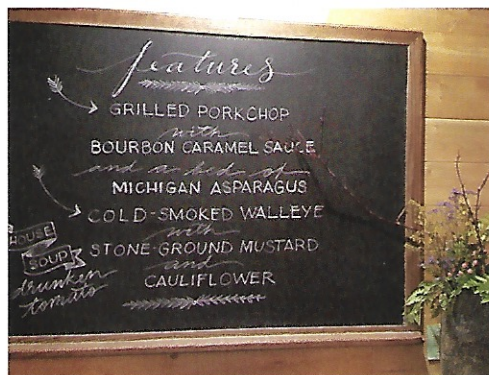 features
GRILLED PORKCHOP
with
BOURBON CARAMEL SAUCE
and a bed of
MICHIGAN ASPARAGUS
COLD-SMOKED WALLEYE
with
STONE-GROUND MUSTARD
and
CAULIFLOWER
HOUSE
SOUP
drunken
tomato